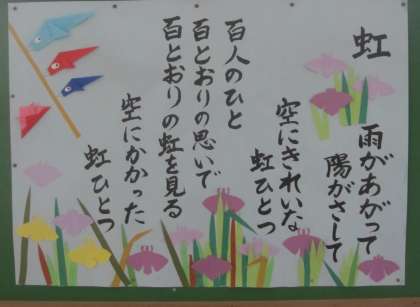 虹
雨があがって
陽がさして
空にきれいな
虹ひとつ
百人のひと
百とおりの思いで
百とおりの虹を見る
空にかかった
虹ひとつ